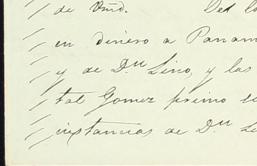 de Vmd. Del lo
en dinero a Panam
y de Dn Lino, y las
tal Gomez primo
instancias de Dn L